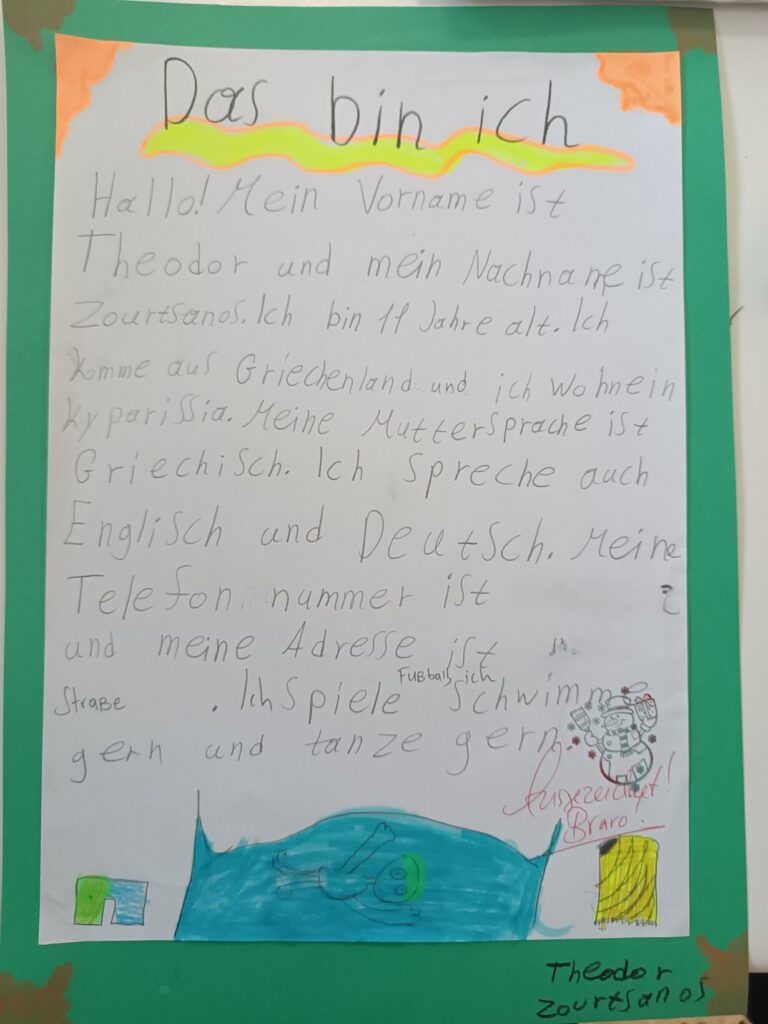 Das bin ich
Hallo! Mein Vorname ist
Theodor und mein Nachname ist
Zourtsanos. Ich bin 11 Jahre alt. Ich
komme aus Griechenland und ich wohne in
Kyparissia. Meine Muttersprache ist
Griechisch. Ich spreche auch
Englisch und Deutsch. Meine
Telefon nummer ist
und meine Adresse ist
Fußball, ich
Straße . Ich spiele schwimm
gern und tanze gern.
Ausgezeichnet!
Bravo!
Theodor
Zourtsanos